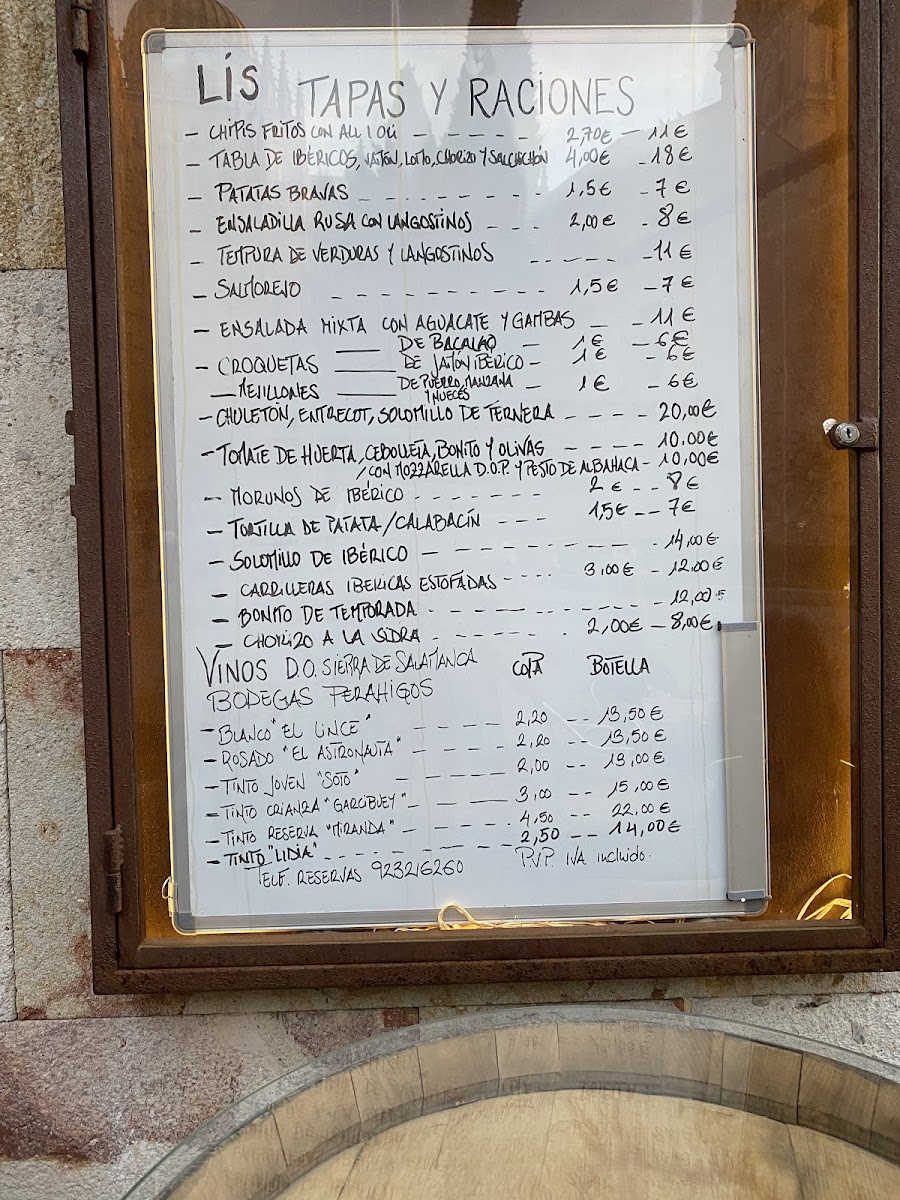 LIS TAPAS Y RACIONES
- CHIPIS FRITOS CON ALLIOLI - - - - - - 2,70€ - 11€
- TABLA DE IBÉRICOS, JAMÓN, LOMO, CHORIZO Y SALCHICHÓN 4,00€ - 18€
- PATATAS BRAVAS - - - - - - - - 1,5€ - 7€
- ENSALADILLA RUSA CON LANGOSTINOS - - - 2,00€ - 8€
- TEMPURA DE VERDURAS Y LANGOSTINOS - - - - - - 11€
- SALMOREJO - - - - - - - - - 1,5€ - 7€
- ENSALADA MIXTA CON AGUACATE Y GAMBAS - - 11€
DE BACALAO - 1€ - 6€
- CROQUETAS DE JAMÓN IBÉRICO - 1€ - 6€
- MEJILLONES DE PUERRO, MANZANA Y NUECES - 1€ - 6€
- CHULETÓN, ENTRECOT, SOLOMILLO DE TERNERA - - - - 20,00€
- TOMATE DE HUERTA, CEBOLLETA, BONITO Y OLIVAS - - - - 10,00€
/CON MOZZARELLA D.O.P. Y PESTO DE ALBAHACA - 10,00€
- MORUNOS DE IBÉRICO - - - - - - - 2€ - - 8€
- TORTILLA DE PATATA/CALABACÍN - - - 1,5€ - - 7€
- SOLOMILLO DE IBÉRICO - - - - - - - - - - 14,00€
- CARRILLERAS IBERICAS ESTOFADAS - - - - 3,00€ - 12,00€
- BONITO DE TEMPORADA - - - - - - - - - - 12,00€
- CHORIZO A LA SIDRA - - - - - - 2,00€ - 8,00€
VINOS D.O. SIERRA DE SALAMANCA COPA BOTELLA
BODEGAS PERAHIGOS
- BLANCO "EL LINCE" - - - - - 2,20 - - 13,50€
- ROSADO "EL ASTRONAUTA" - - - - 2,20 - - 13,50€
- TINTO JOVEN "SOTO" - - - - - 2,00 - - 13,00€
- TINTO CRIANZA "GARCIBUEY" - - - - 3,00 - - 15,00€
- TINTO RESERVA "MIRANDA" - - - - - 4,50 - - 22,00€
- TINTO "LIDIA" - - - - - - - - 2,50 - - 14,00€
TELF. RESERVAS 923216260 P.V.P. IVA incluido.